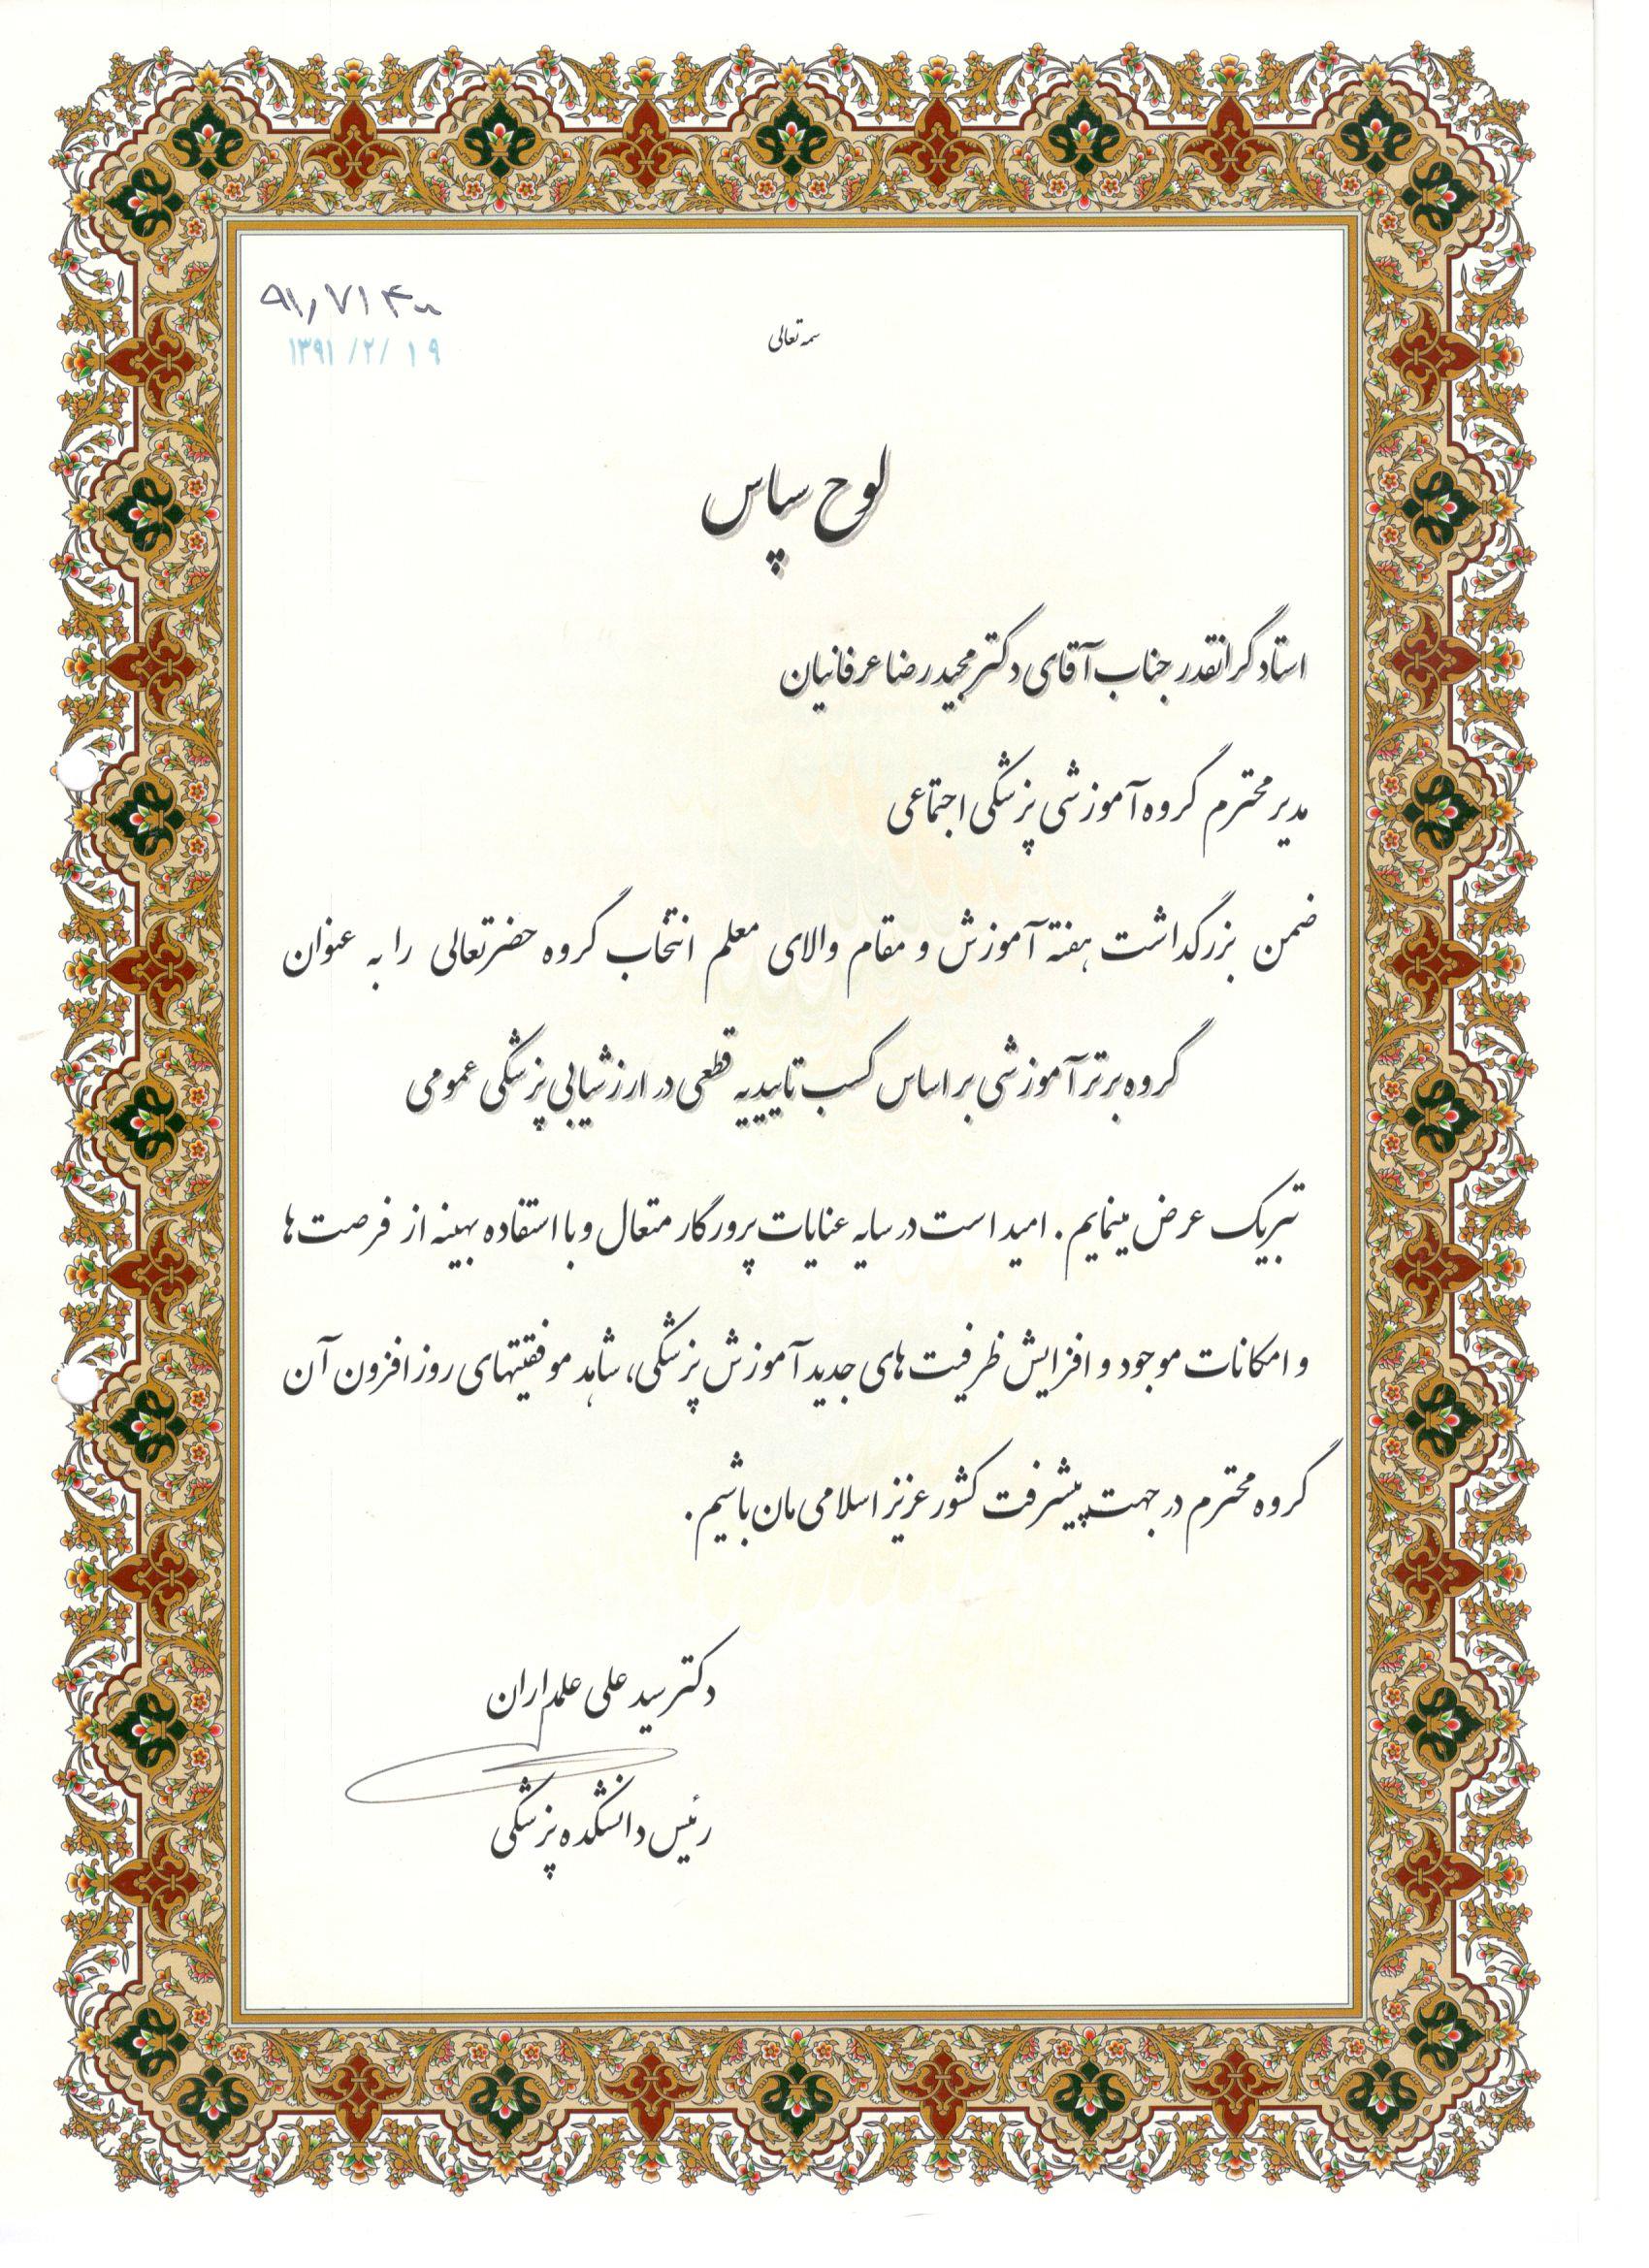 ۱۳۹۱/۲/۱۹
سمه تعالی
لوح سپاس
استاد گرانقدر جناب آقای دکتر مجیدرضا عرفانیان
مدیر محترم گروه آموزشی پزشکی اجتماعی
ضمن بزرگداشت هفته آموزش و مقام والای معلم انتخاب گروه حضرتعالی را به عنوان
گروه برتر آموزشی بر اساس کسب تاییدیه قطعی در ارزشیابی پزشکی عمومی
تبریک عرض مینمایم. امید است در سایه عنایات پرورگار متعال و با استفاده بهینه از فرصت ها
و امکانات موجود و افزایش ظرفیت های جدید آموزش پزشکی، شاهد موفقیتهای روز افزون آن
گروه محترم در جهت پیشرفت کشور عزیز اسلامی مان باشیم.
دکتر سید علی علمداران
رئیس دانشکده پزشکی